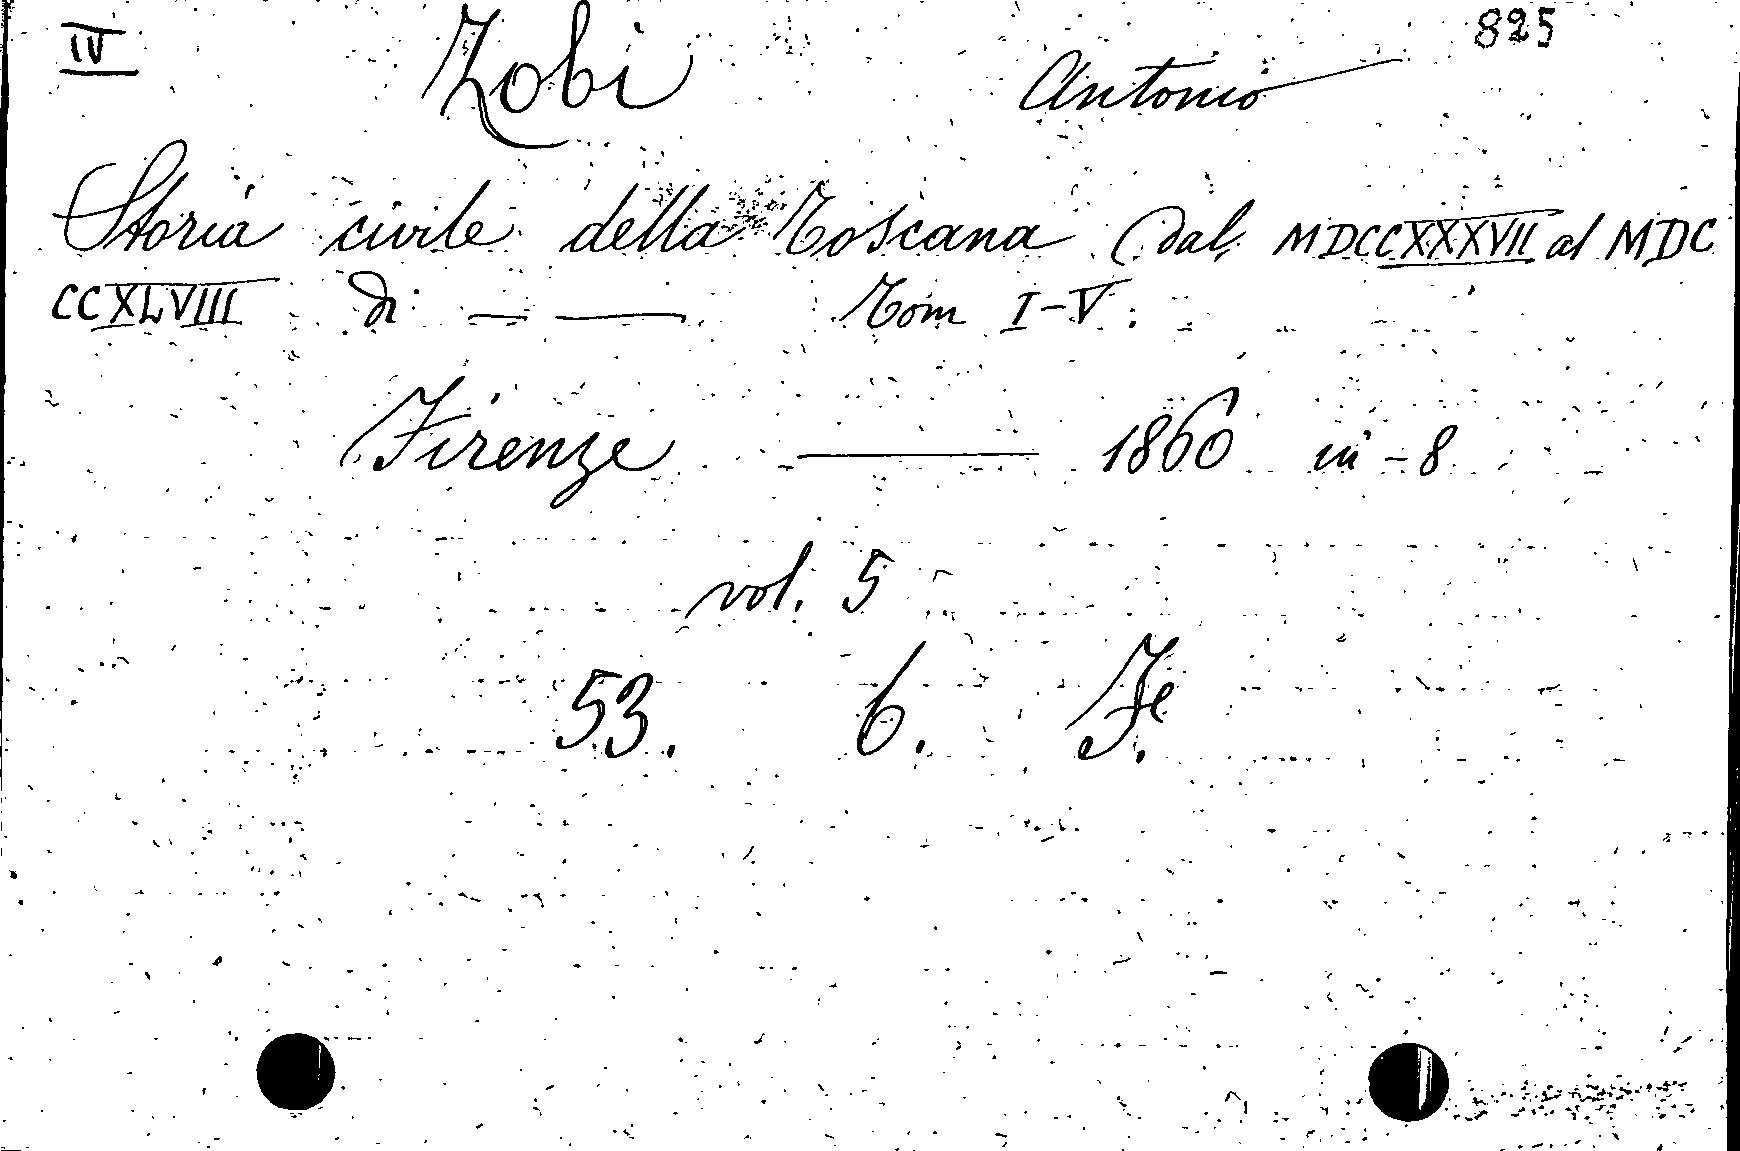 IV Zobi Antonio 825
Storia civile della Toscana dal MDCCXXXVII al MDC
CCXLVIII di — — Tom I-V.
Firenze — 1860 in-8
vol. 5
53. 6. Fe.